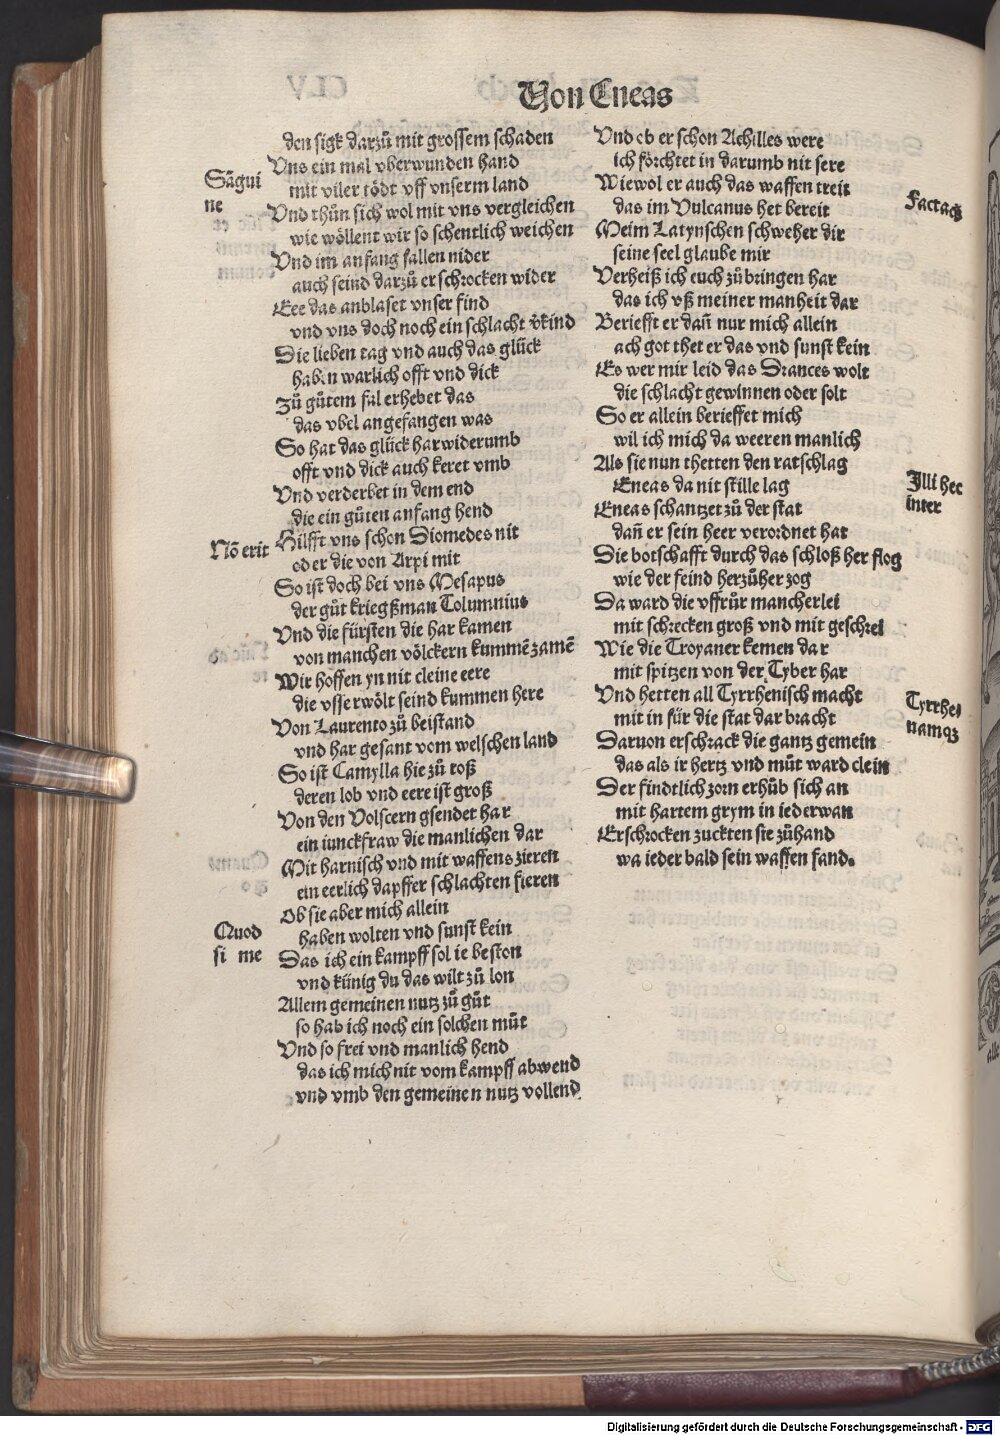 Von Eneas
den sigk darzů mit grossem schaden
Vns ein mal vberwunden hand
Sãgui
mit viler tödt vff vnserm land
ne
Vnd thůn sich wol mit vns vergleichen
wie wöllent wir so schentlich weichen
Vnd im anfang fallen nider
auch seind darzů erschrocken wider
Eee das anblaset vnser find
vnd vns doch noch ein schlacht v̈kind
Die lieben tag vnd auch das glück
haben warlich offt vnd dick
Zů gůtem fal erhebet das
das vbel angefangen was
So hat das glück harwiderumb
offt vnd dick auch keret vmb
Vnd verderbet in dem end
die ein gůten anfang hend
Nõ erit
Hilfft vns schon Diomedes nit
oder die von Arpi mit
So ist doch bei vns Mesapus
der gůt kriegßman Tolumnius
Vnd die fürsten die har kamen
von manchen völckern kummẽ zamẽ
Wir hoffen yn nit cleine eere
die vsserwölt seind kummen here
Von Laurento zů beistand
vnd har gesant vom welschen land
So ist Camylla hie zů roß
deren lob vnd eere ist groß
Von den Volscern gsendet har
ein iunckfraw die manlichen dar
Mit harnisch vnd mit waffens zieren
ein eerlich dapffer schlachten fieren
Ob sie aber mich allein
Quod
haben wolten vnd sunst kein
si me
Das ich ein kampff sol ie beston
vnd künig du das wilt zů lon
Allem gemeinen nutz zů gůt
so hab ich noch ein solchen můt
Vnd so frei vnd manlich hend
das ich mich nit vom kampff abwend
vnd vmb den gemeinen nutz vollend
Vnd ob er schon Achilles were
ich förchtet in darumb nit sere
Wiewol er auch das waffen treit
Factaqꝫ
das im Vulcanus het bereit
Meim Latynschen schweher dir
seine seel glaube mir
Verheiß ich euch zů bringen har
das ich vß meiner manheit dar
Beriefft er dañ nur mich allein
ach got thet er das vnd sunst kein
Es wer mir leid das Drances wolt
die schlacht gewinnen oder solt
So er allein berieffet mich
wil ich mich da weeren manlich
Als sie nun thetten den ratschlag
Illi hec
Eneas da nit stille lag
inter
Eneas schantzet zů der stat
dañ er sein heer verordnet hat
Die botschafft durch das schloß her flog
wie der feind herzůher zog
Da ward die vffrůr mancherlei
mit schrecken groß vnd mit geschrei
Wie die Troyaner kemen dar
mit spitzen von der Tyber har
Vnd hetten all Tyrrhenisch macht
Tyrrhe⸗
mit in für die stat dar bracht
namqꝫ
Daruon erschrack die gantz gemein
das als ir hertz vnd můt ward clein
Der findtlich zorn erhůb sich an
mit hartem grym in iederman
Erschrocken zuckten sie zůhand
wa ieder bald sein waffen fand.
Digitalisierung gefördert durch die Deutsche Forschungsgemeinschaft - DFG